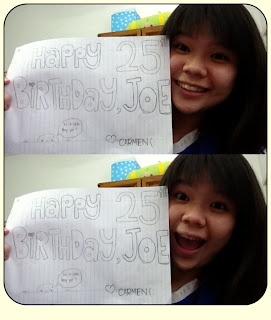 HAPPY 25TH
BIRTHDAY, JOE
♡ CARMEN C
HAPPY 25TH
BIRTHDAY, JOE
♡ CARMEN C